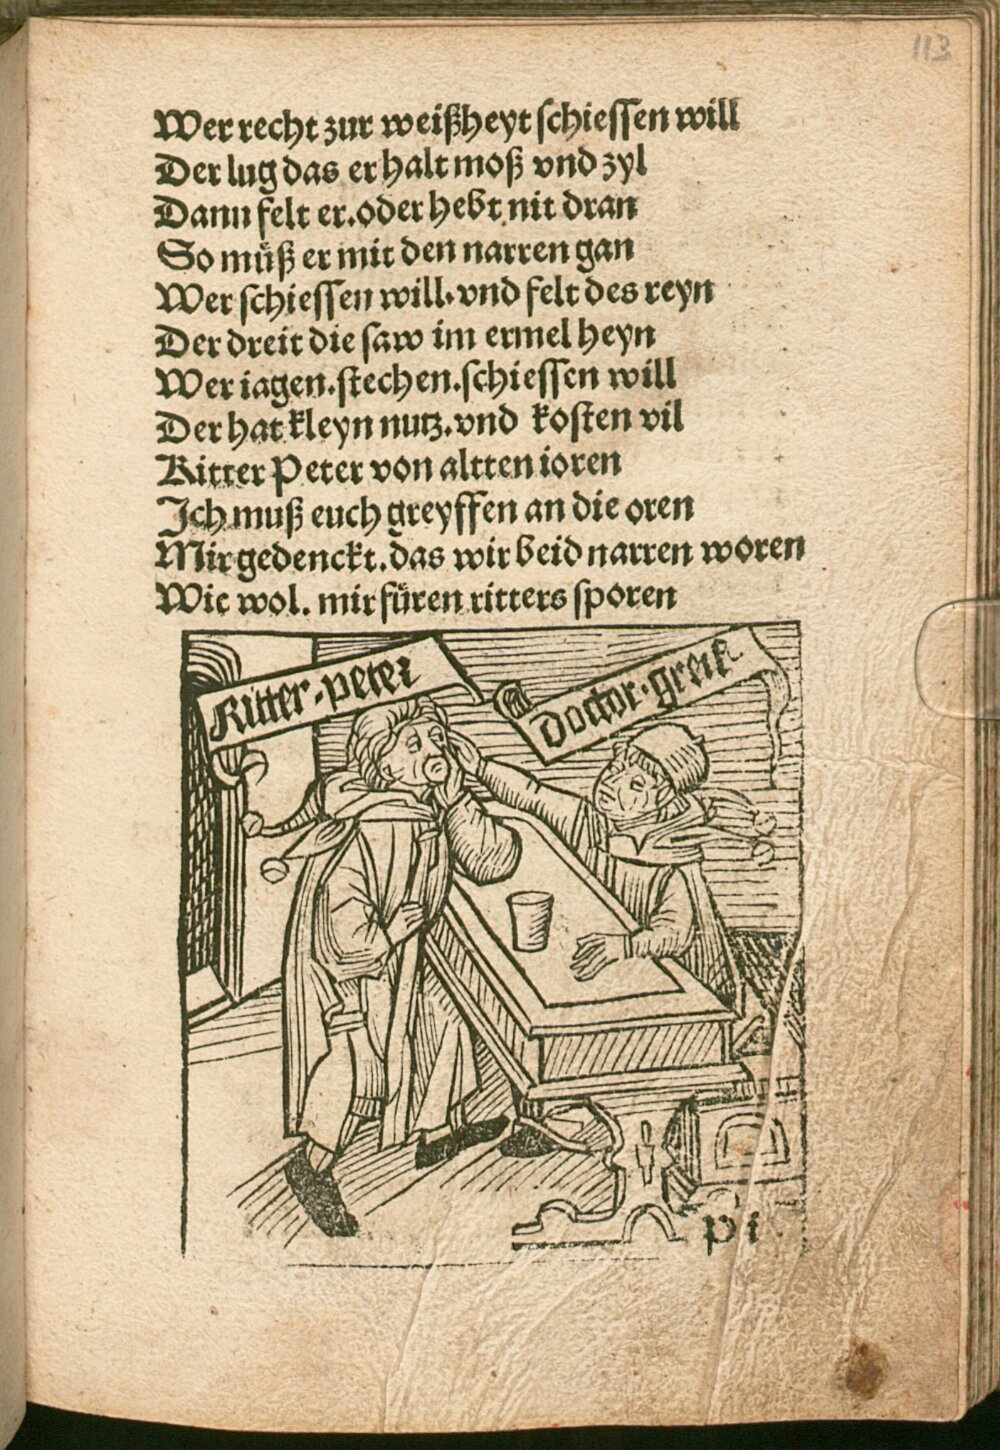 113
Wer recht zur weißheyt schiessen will
Der lug das er halt moß vnd zyl
Dann felt er. oder hebt nit dran
So muͤß er mit den narren gan
Wer schiessen will. vnd felt des reyn
Der dreit die saw im ermel heyn
Wer iagen. stechen. schiessen will
Der hat kleyn nutz. vnd kosten vil
Ritter Peter von altten ioren
Ich muß euch greyffen an die oren
Mir gedenckt. das wir beid narren woren
Wie wol. mir fuͤren ritters sporen
Ritter. peter
Doctor. greiff
p i